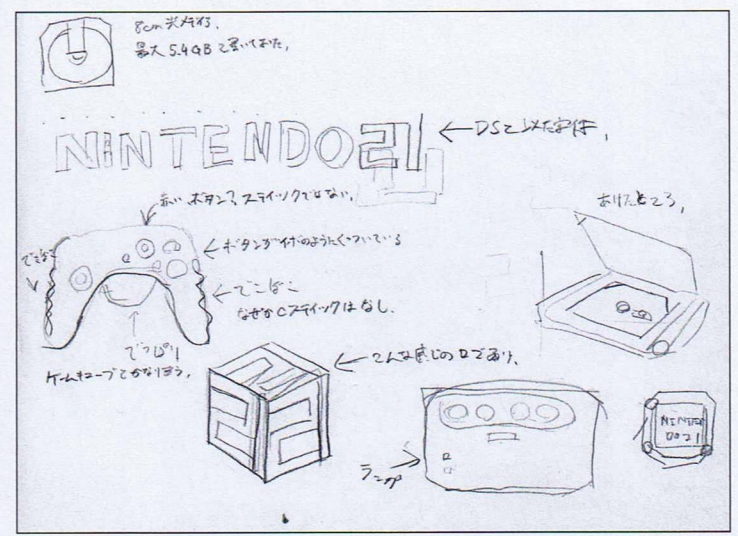 8cm光メディア。
最大5.4GBと書いてあった。
NINTENDO21
←DSと似た字体。
赤いボタン?スティックではない。
あけたところ。
でこぼこ
←ボタンがイボのようにくっついている
←でこぼこ
なぜかCスティックはなし。
でっぱり
ゲームキューブとかなり違う。
←こんな感じのロゴあり。
ランプ
NINTEN
DO21